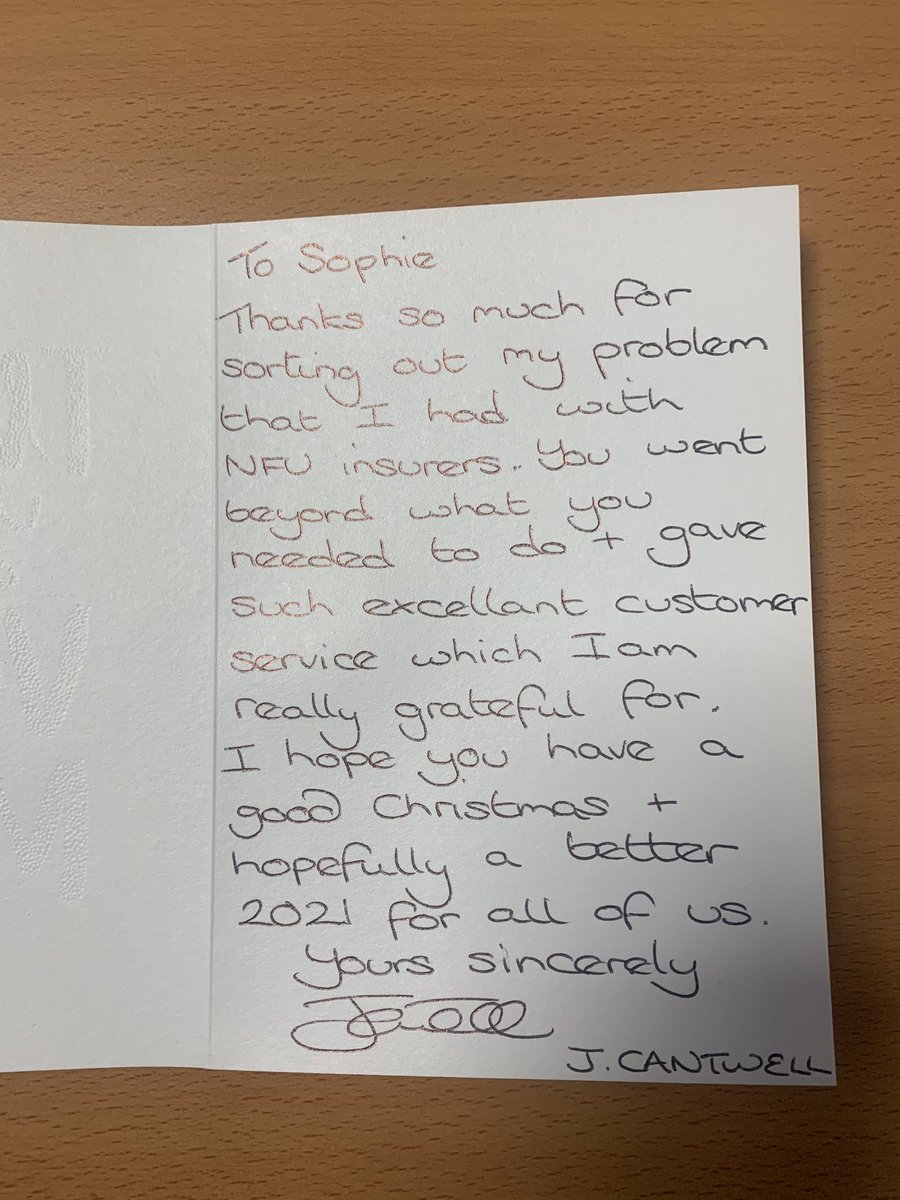 To Sophie
Thanks so much for
sorting out my problem
that I had with
NFU insurers. You went
beyond what you
needed to do + gave
such excellant customer
service which I am
really grateful for.
I hope you have a
good Christmas +
hopefully a better
2021 for all of us.
Yours sincerely
J. CANTWELL